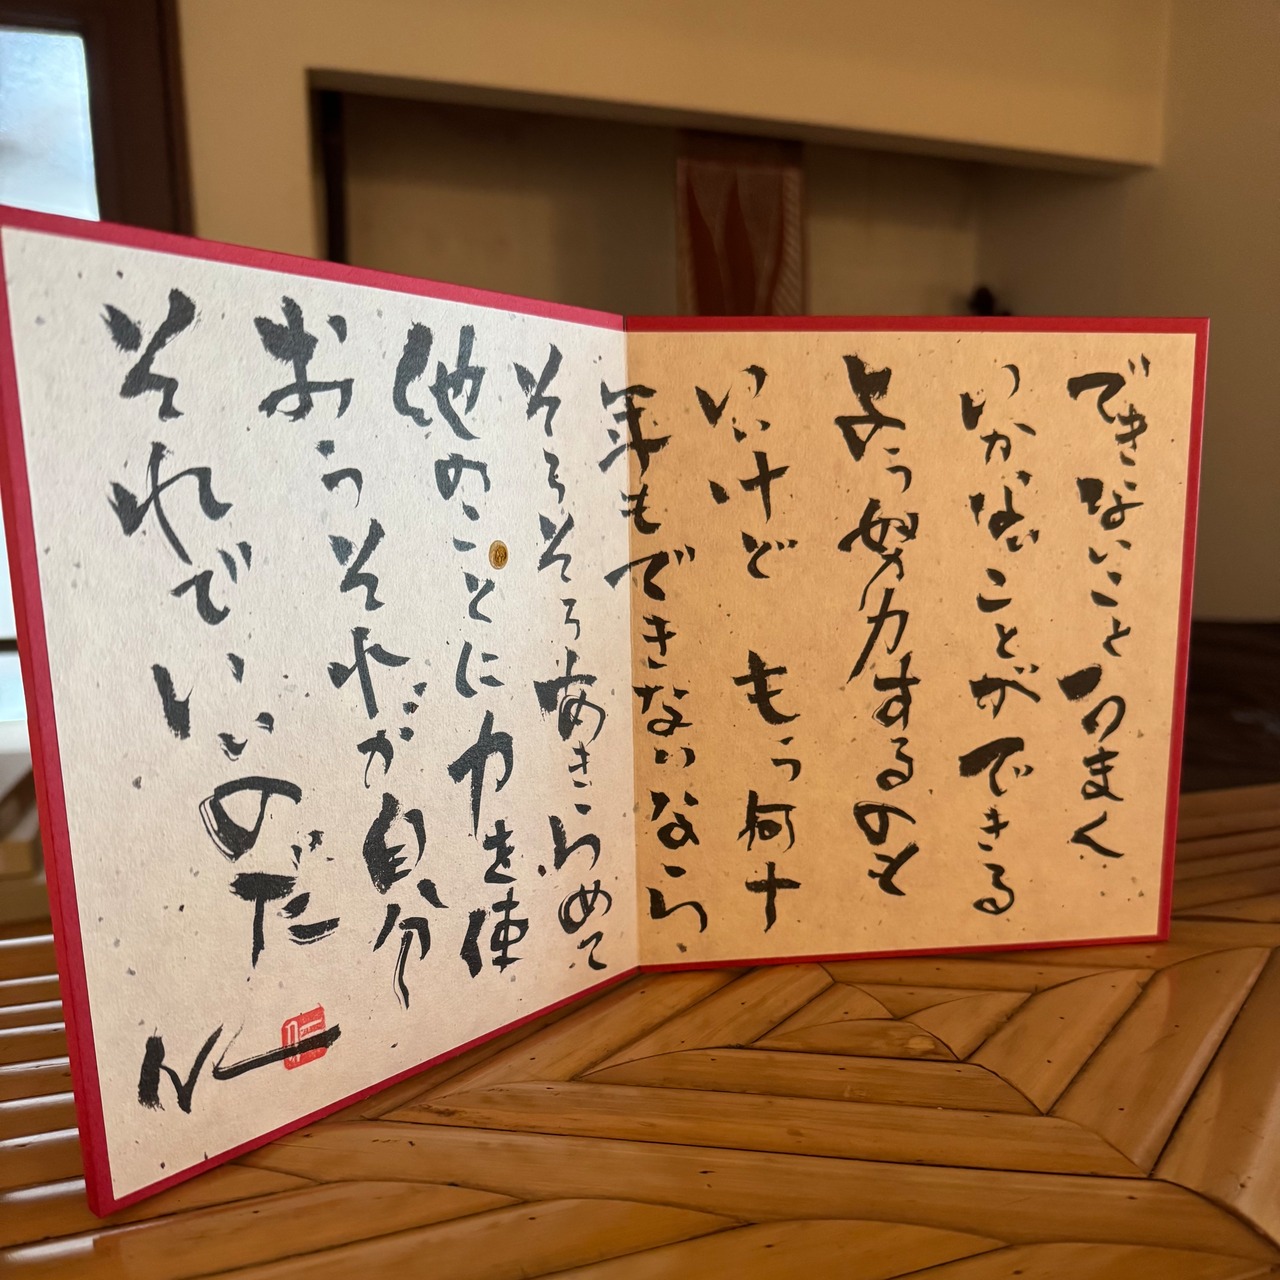 できないこと うまく
いかないことができる
よう努力するのも
いいけど もう何十
年もできないなら
そろそろあきらめて
他のことに力を使
おうそれが自分
それでいいのだ